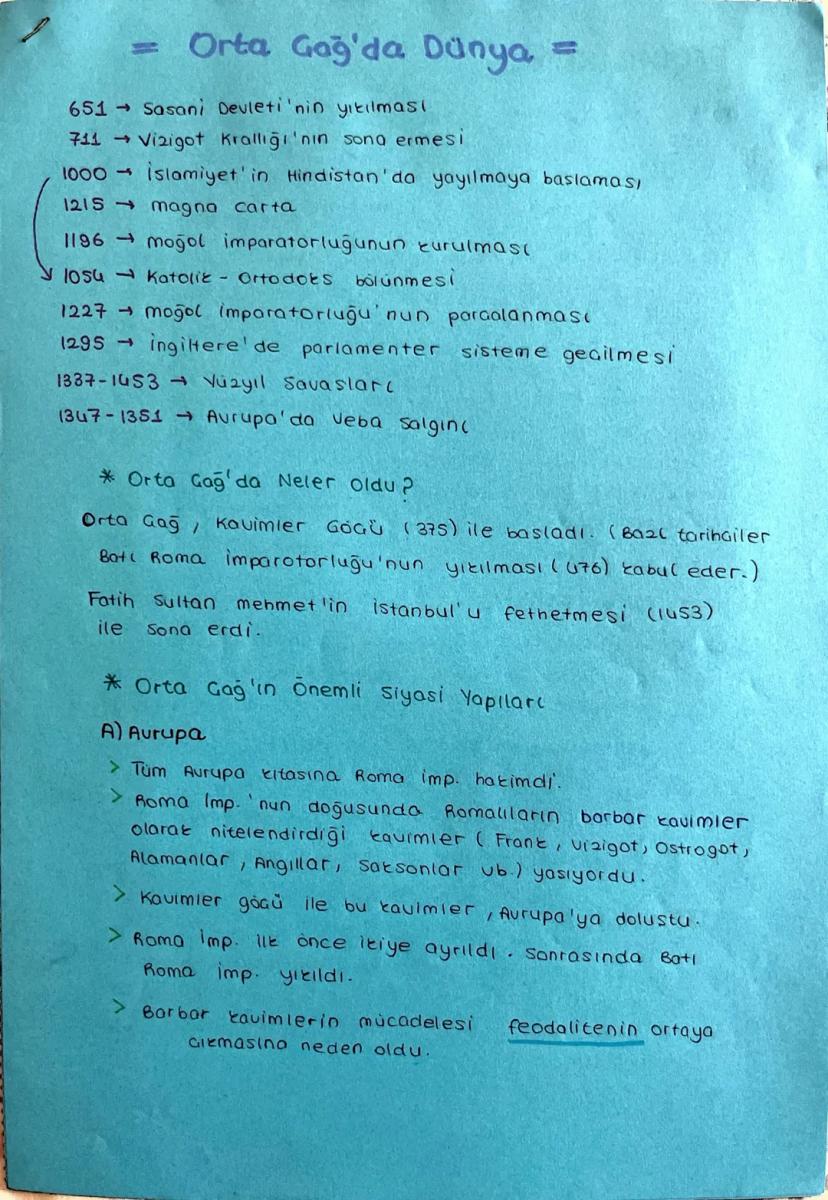 = Orta Çağ'da Dünya =
651 → Sasani Devleti'nin yıkılması
711 → Vizigot Krallığı'nın sona ermesi
1000 → İslamiyet'in Hindistan'da yayılmaya başlaması
1215 → magna carta
1196 → moğol imparatorluğunun kurulması
1054 → Katolik - Ortodoks bölünmesi
1227 → moğol imparatorluğu'nun parçalanması
1295 → ingiltere'de parlamenter sisteme geçilmesi
1337-1453 → Yüzyıl Savaşları
1347-1351 → Avrupa'da Veba Salgını
* Orta Çağ'da Neler oldu?
Orta Çağ, Kavimler Göçü (375) ile başladı. (Bazı tarihçiler
Batı Roma imparotorluğu'nun yıkılması (476) kabul eder.)
Fatih Sultan mehmet'in istanbul'u fethetmesi (1453)
ile sona erdi.
* Orta Çağ'ın Önemli Siyasi Yapıları
A) Avrupa
> Tüm Avrupa kıtasına Roma imp. hakimdi.
> Roma İmp.'nun doğusunda Romalıların barbar kavimler
olarak nitelendirdiği kavimler (Frank, Vizigot, Ostrogot,
Alamanlar, Angıllar, Saksonlar vb.) yaşıyordu.
> Kavimler göçü ile bu kavimler, Avrupa'ya doluştu.
> Roma İmp. ilk önce ikiye ayrıldı. Sonrasında Batı
Roma imp. yıkıldı.
> Barbar kavimlerin mücadelesi feodalitenin ortaya
çıkmasına neden oldu.